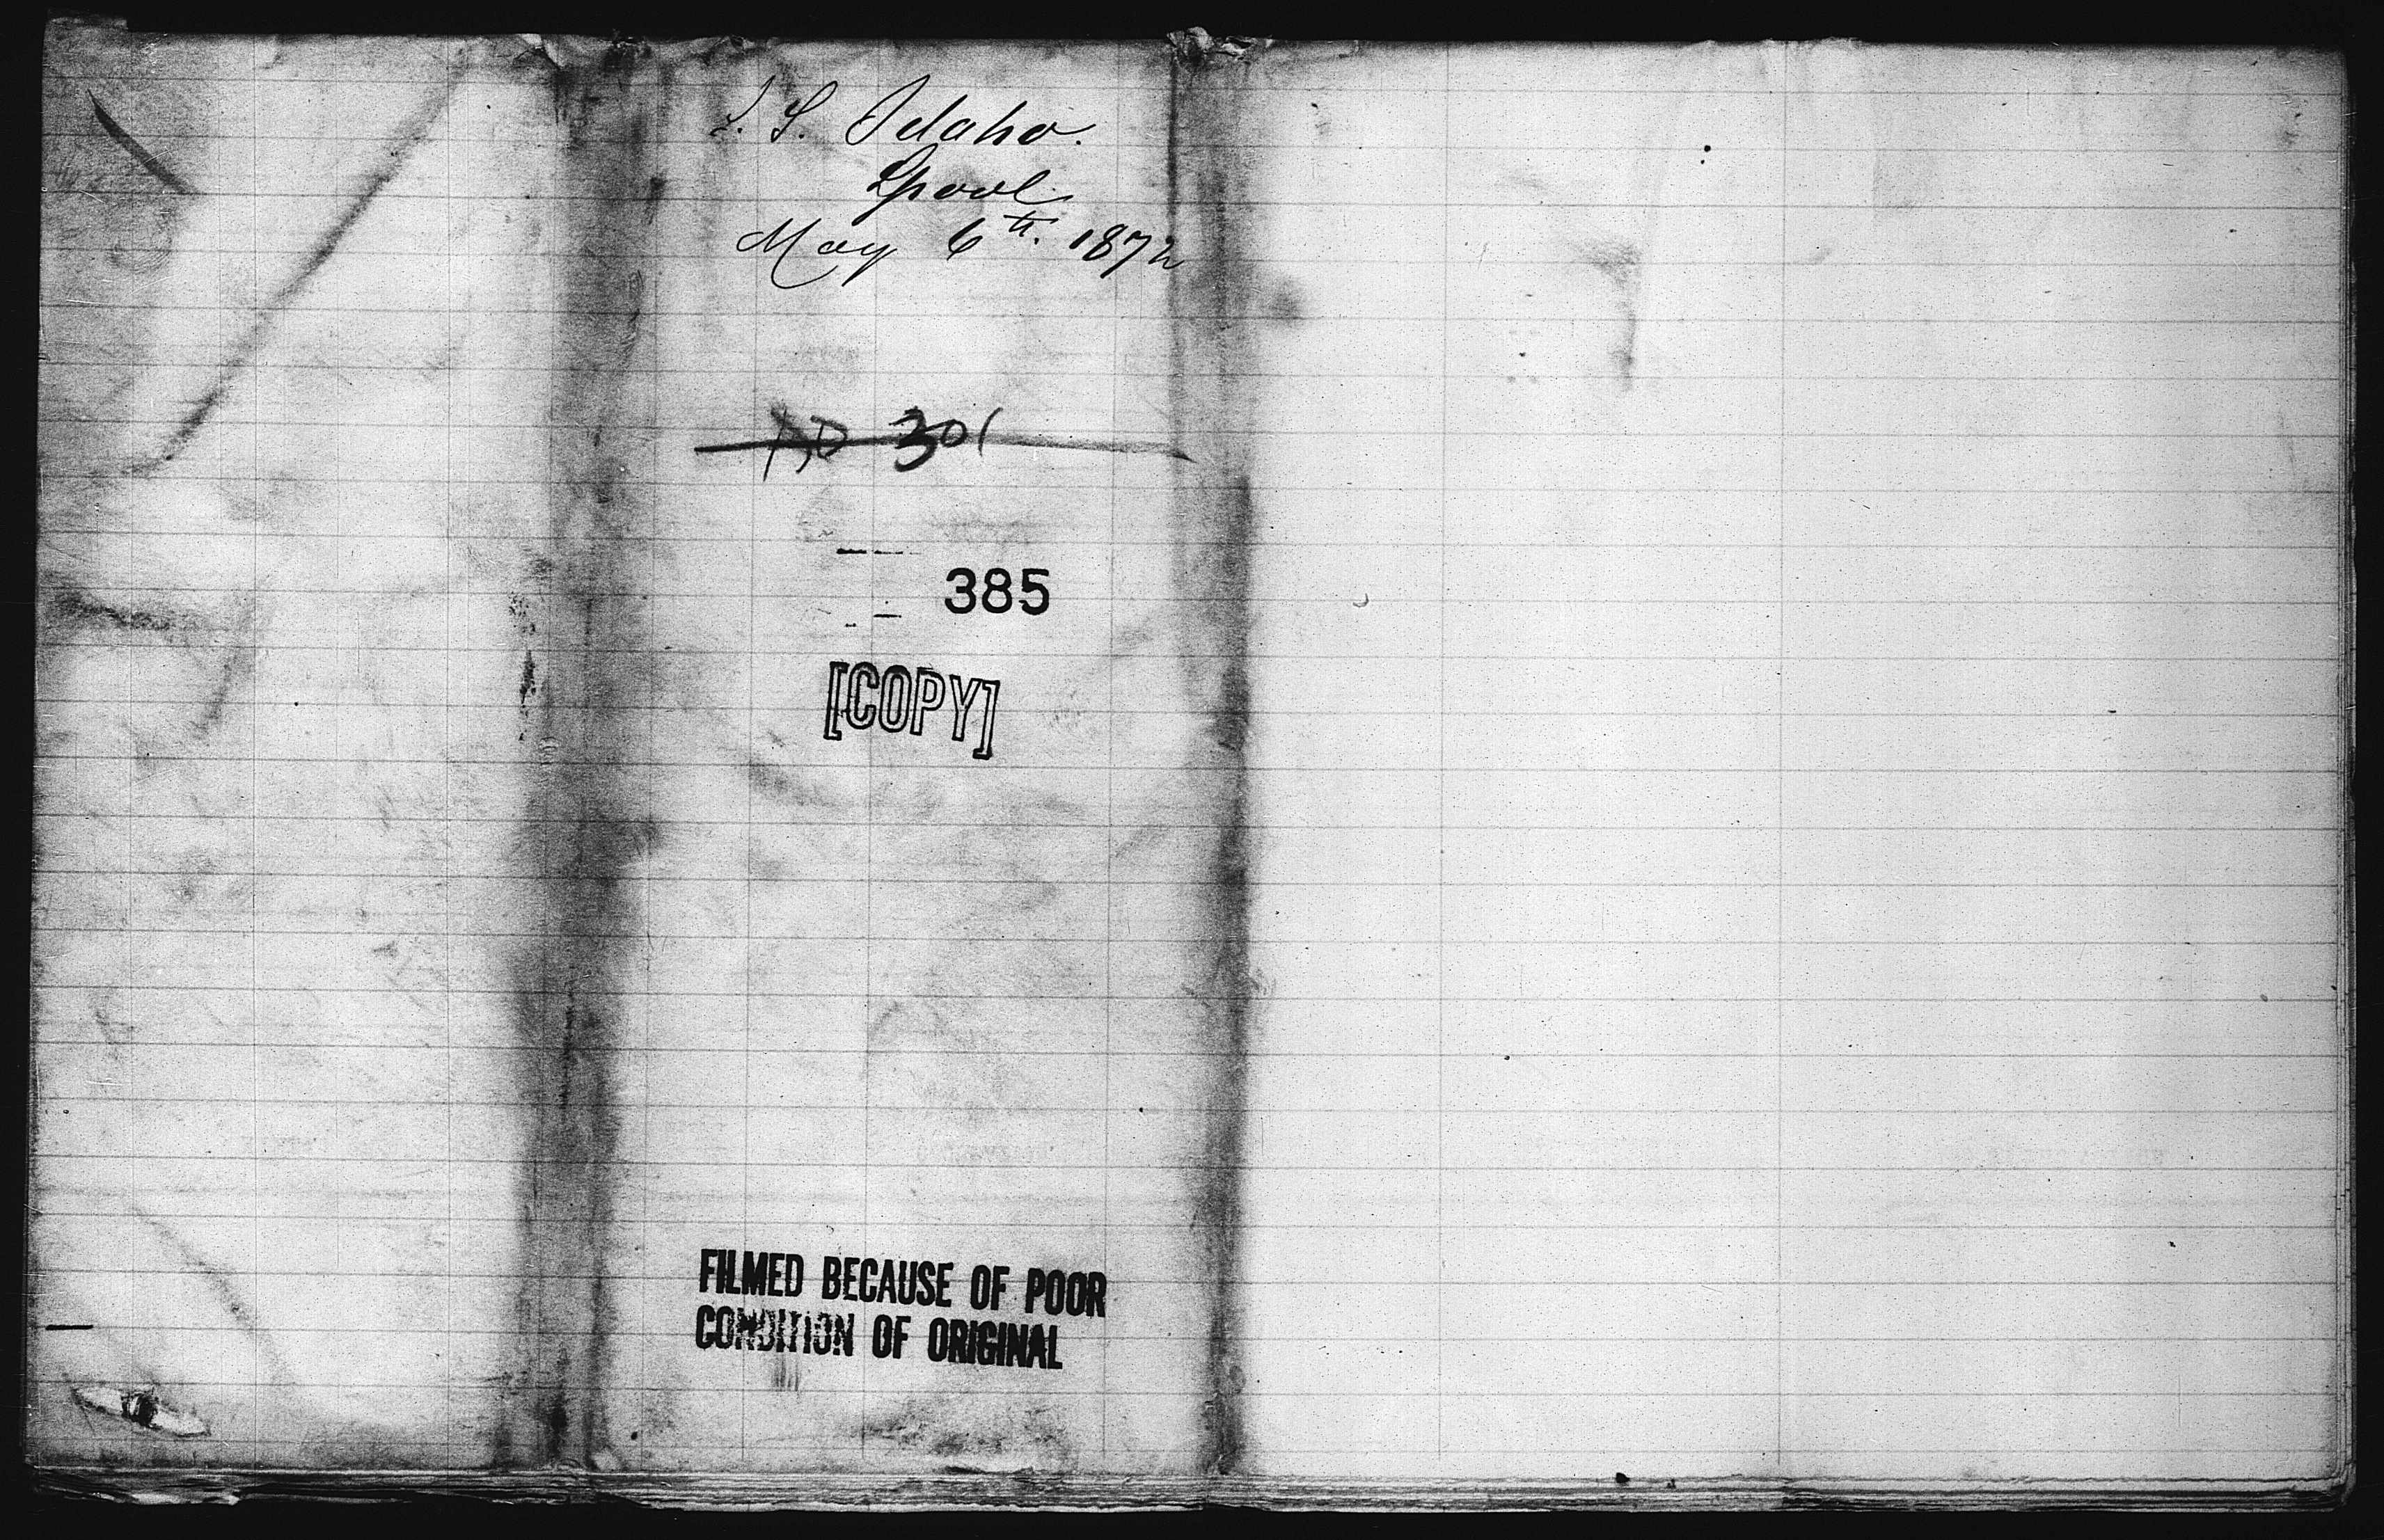 S. S. Idaho.
Lpool
May 6th. 1872
301
385
[COPY]
FILMED BECAUSE OF POOR
CONDITION OF ORIGINAL